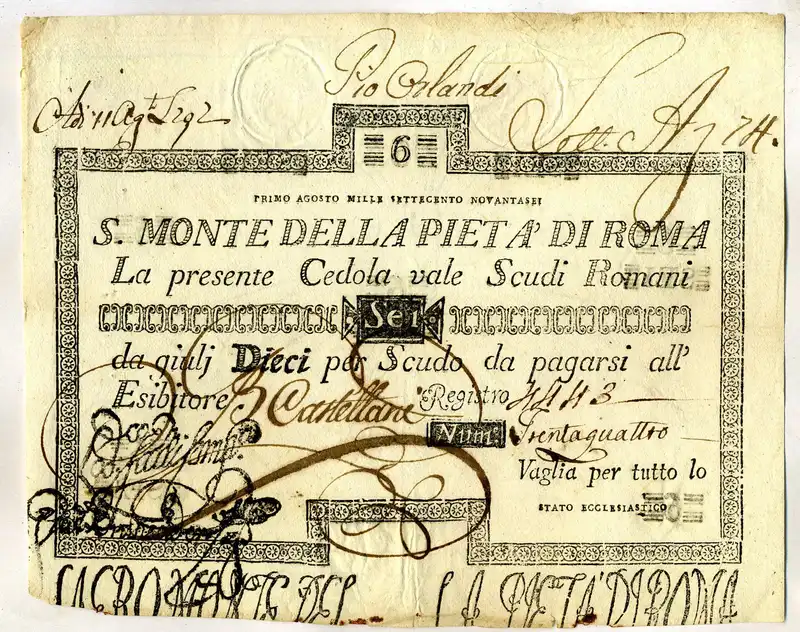 Pio Orlandi
74.
6
PRIMO AGOSTO MILLE SETTECENTO NOVANTASEI
S. MONTE DELLA PIETA' DI ROMA
La presente Cedola vale Scudi Romani
Sei
da giulj Dieci per Scudo da pagarsi all'
Esibitore B Castellane Registro 4443
Num. Trentaquattro
Vaglia per tutto lo
STATO ECCLESIASTICO
SACRO MONTE DEL LA PIETA' DI ROMA